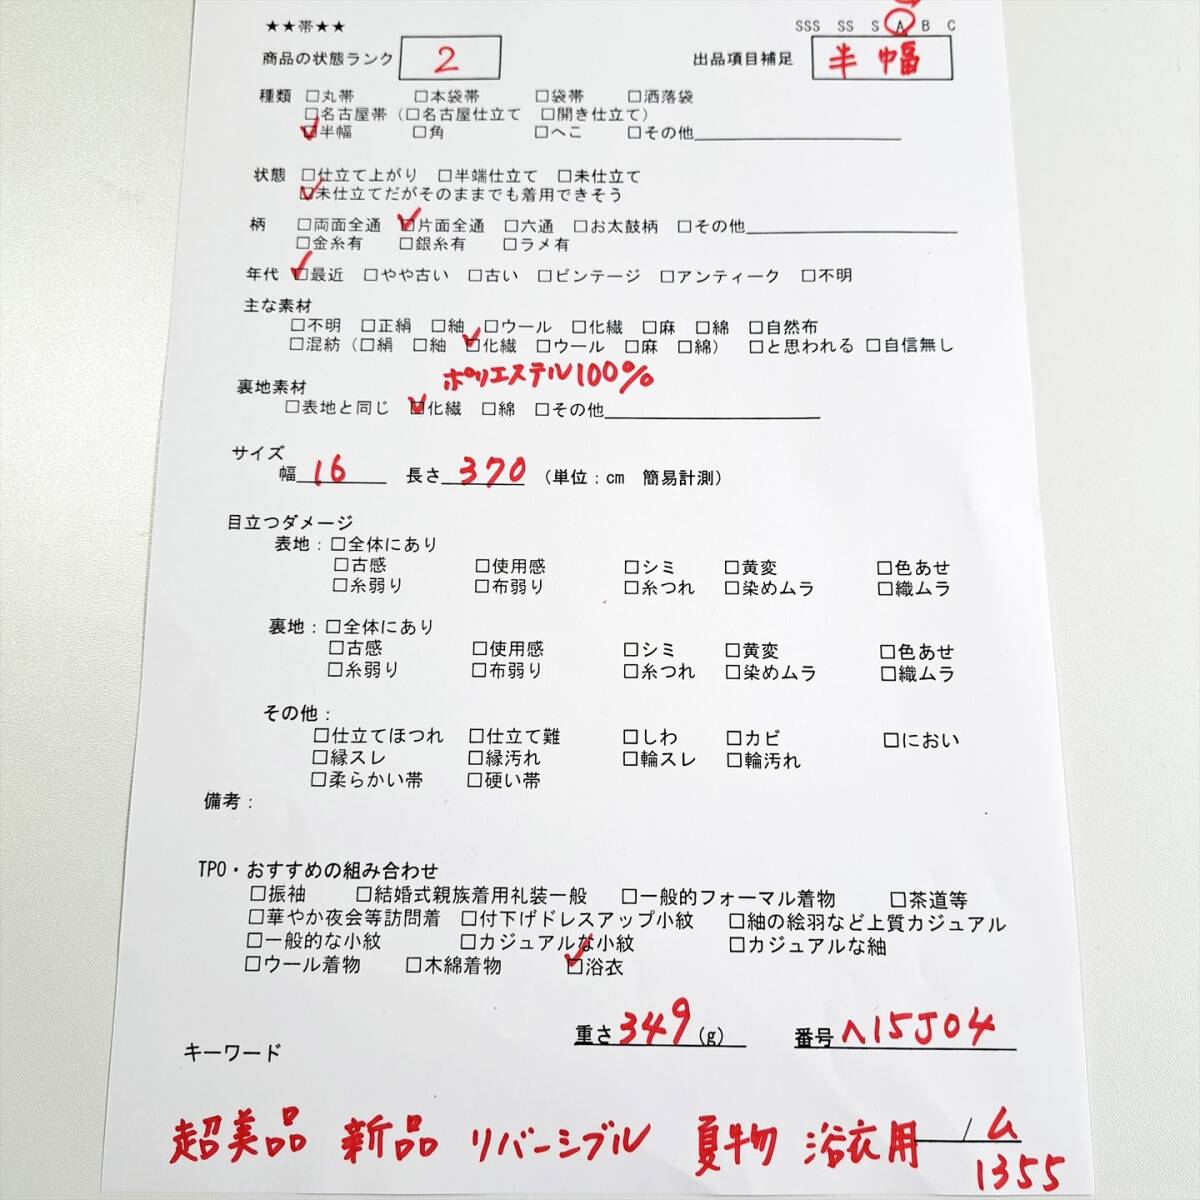 ★★帯★★
SSS SS S A B C
商品の状態ランク 2 出品項目補足 半幅
種類 □丸帯 □本袋帯 □袋帯 □洒落袋
□名古屋帯（□名古屋仕立て □開き仕立て）
☑半幅 □角 □へこ □その他
状態 □仕立て上がり □半端仕立て □未仕立て
☑未仕立てだがそのままでも着用できそう
柄 □両面全通 ☑片面全通 □六通 □お太鼓柄 □その他
□金糸有 □銀糸有 □ラメ有
年代 ☑最近 □やや古い □古い □ビンテージ □アンティーク □不明
主な素材
□不明 □正絹 □紬 □ウール □化繊 □麻 □綿 □自然布
□混紡（□絹 □紬 ☑化繊 □ウール □麻 □綿） □と思われる □自信無し
ポリエステル100%
裏地素材
□表地と同じ ☑化繊 □綿 □その他
サイズ
幅 16 長さ 370 （単位：cm 簡易計測）
目立つダメージ
表地：□全体にあり
□古感 □使用感 □シミ □黄変 □色あせ
□糸弱り □布弱り □糸つれ □染めムラ □織ムラ
裏地：□全体にあり
□古感 □使用感 □シミ □黄変 □色あせ
□糸弱り □布弱り □糸つれ □染めムラ □織ムラ
その他：
□仕立てほつれ □仕立て難 □しわ □カビ □におい
□縁スレ □縁汚れ □輪スレ □輪汚れ
□柔らかい帯 □硬い帯
備考：
TPO・おすすめの組み合わせ
□振袖 □結婚式親族着用礼装一般 □一般的フォーマル着物 □茶道等
□華やか夜会等訪問着 □付下げドレスアップ小紋 □紬の絵羽など上質カジュアル
□一般的な小紋 □カジュアルな小紋 □カジュアルな紬
□ウール着物 □木綿着物 ☑浴衣
重さ 349 (g) 番号 ヘ15J04
キーワード
超美品 新品 リバーシブル 夏物 浴衣用 / ム
1355